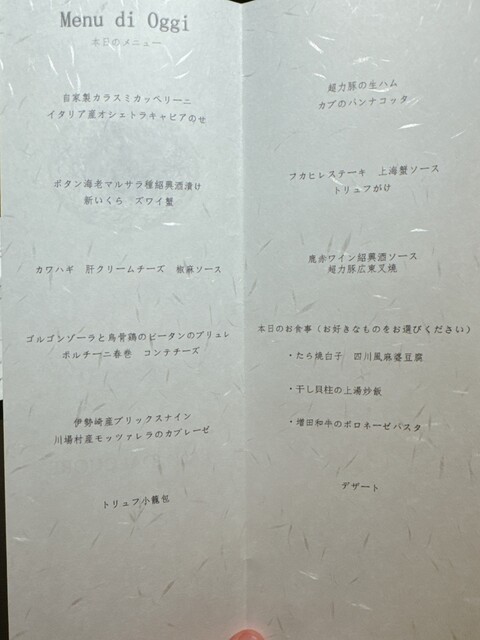 Menu di Oggi
本日のメニュー
自家製カラスミカッペリーニ
イタリア産オシェトラキャビアのせ
ボタン海老マルサラ種紹興酒漬け
新いくら　ズワイ蟹
カワハギ　肝クリームチーズ　椒麻ソース
ゴルゴンゾーラと烏骨鶏のピータンのブリュレ
ポルチーニ春巻　コンテチーズ
伊勢崎産ブリックスナイン
川場村産モッツァレラのカプレーゼ
トリュフ小籠包
超力豚の生ハム
カブのパンナコッタ
フカヒレステーキ　上海蟹ソース
トリュフがけ
鹿赤ワイン紹興酒ソース
超力豚広東叉焼
本日のお食事（お好きなものをお選びください）
・たら焼白子　四川風麻婆豆腐
・干し貝柱の上湯炒飯
・増田和牛のボロネーゼパスタ
デザート